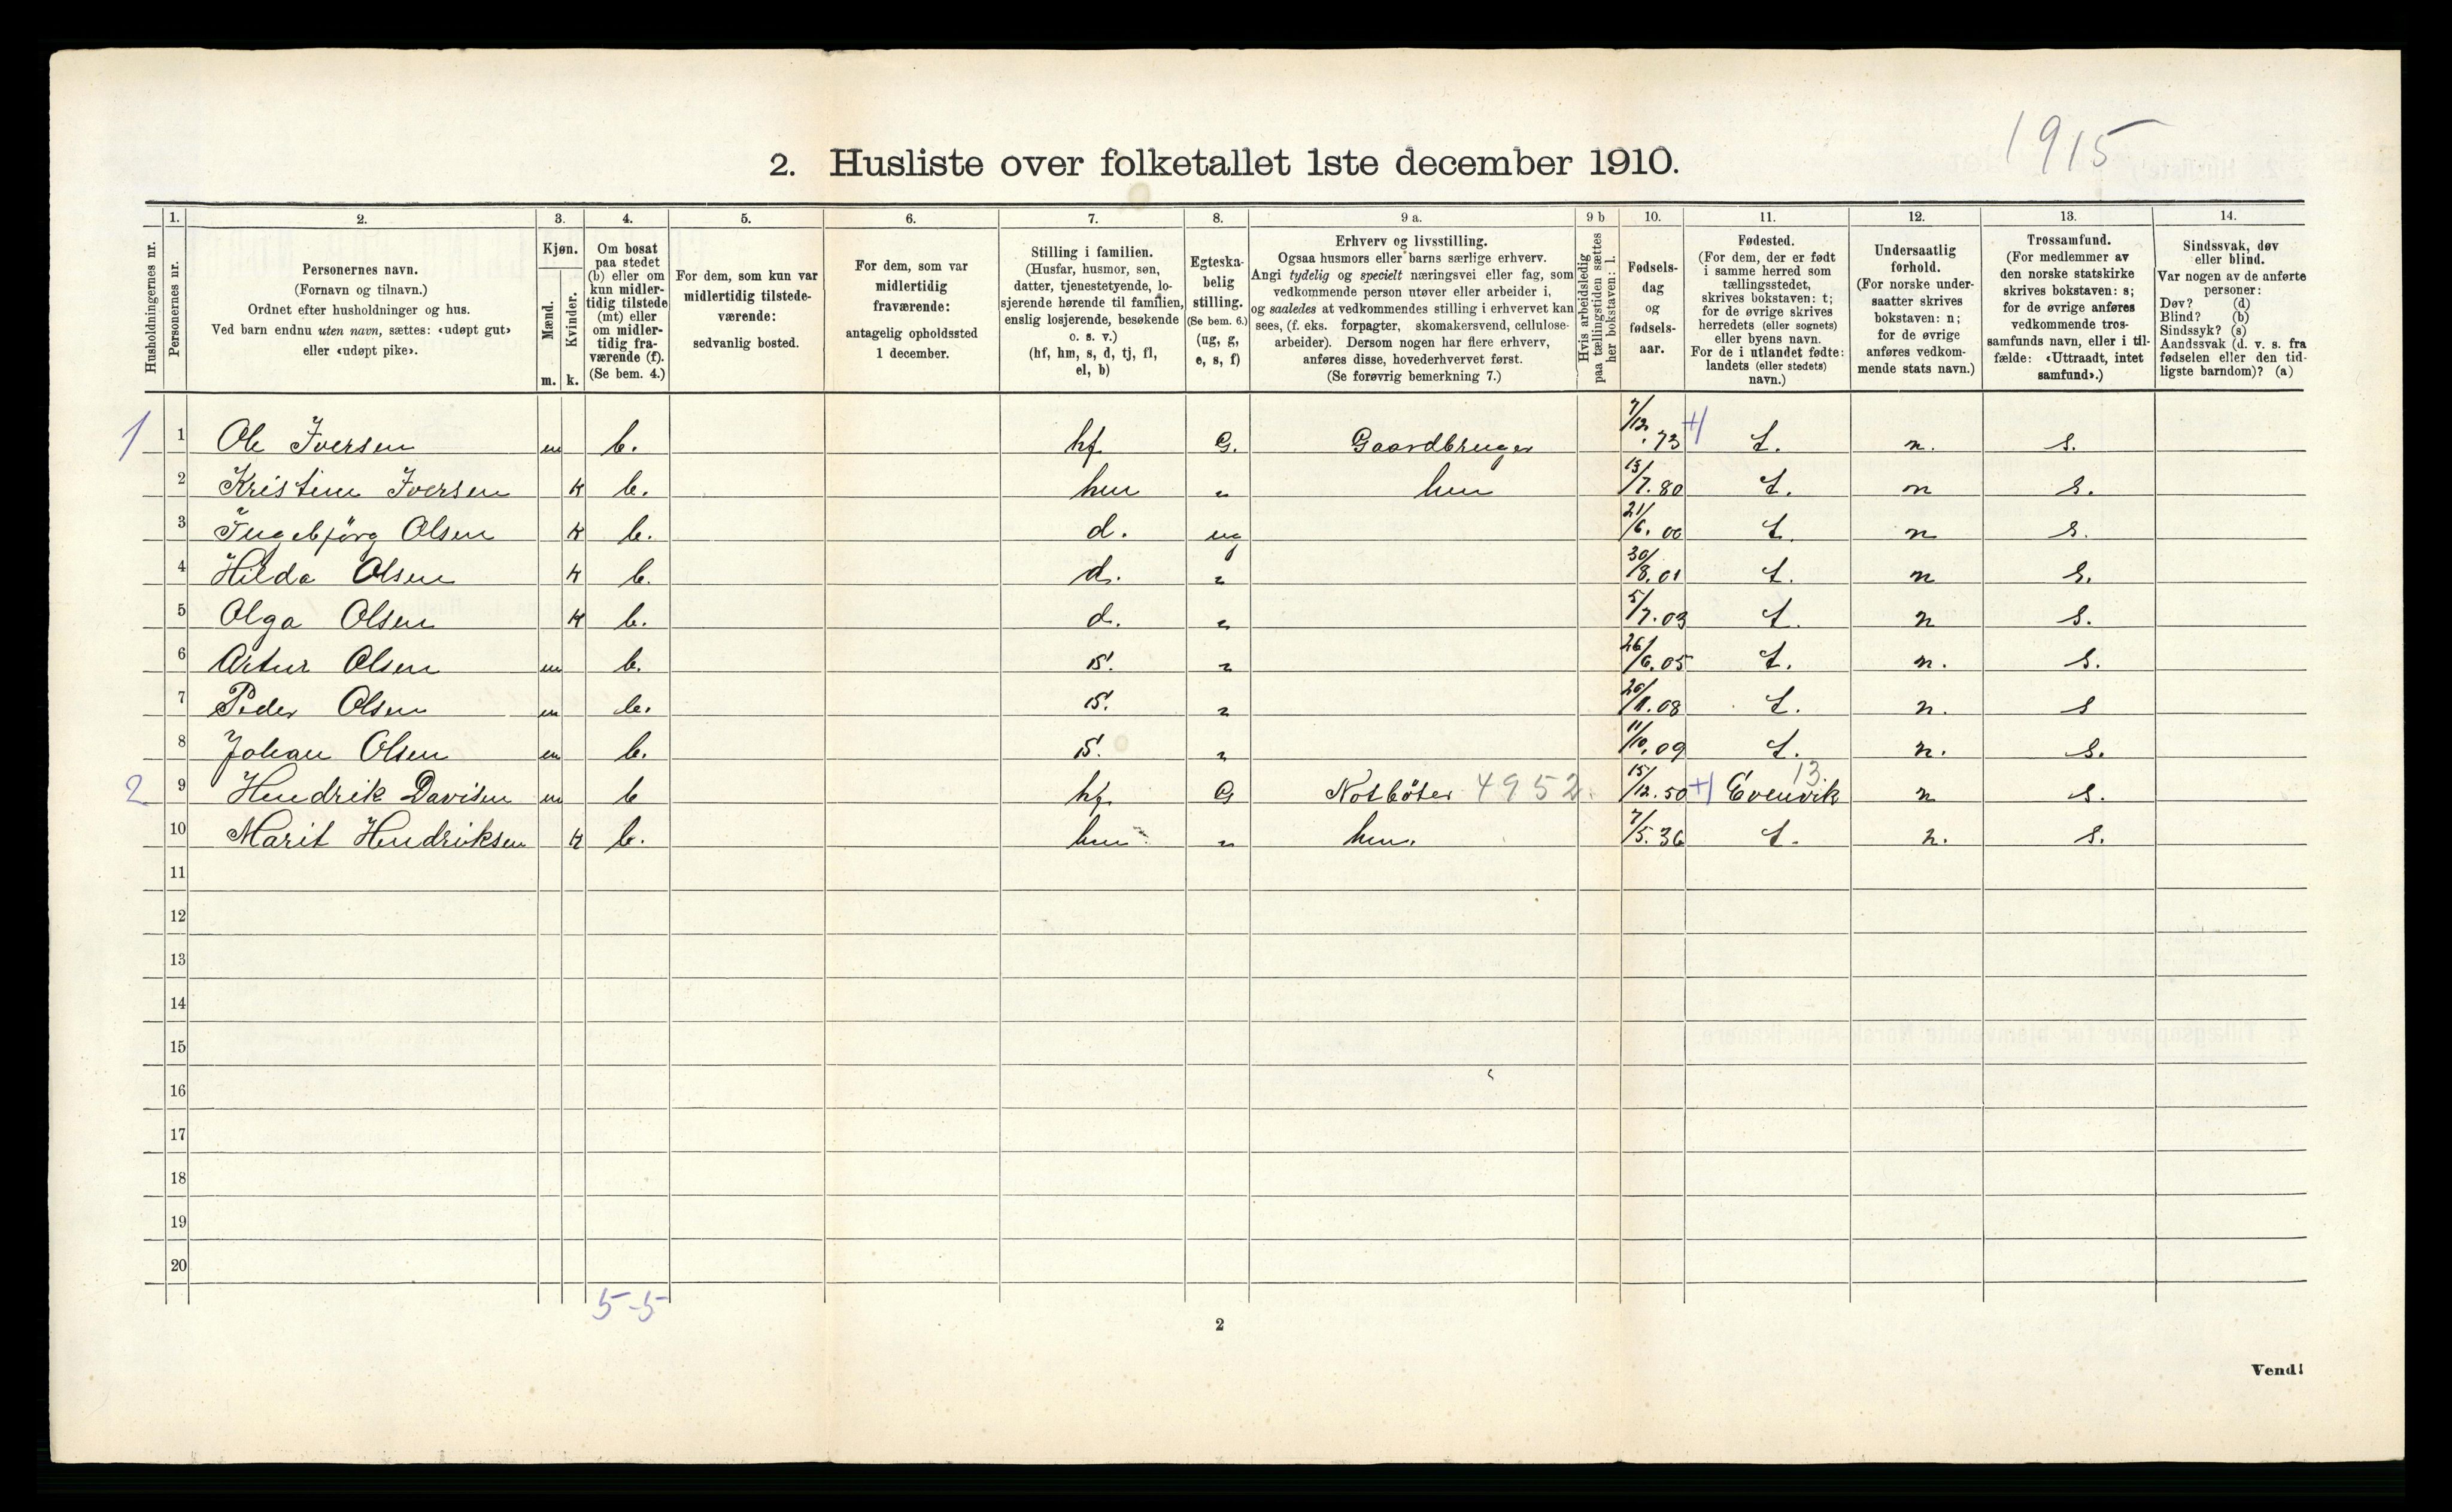 1915
2. Husliste over folketallet 1ste december 1910.
1. 2. 3. 4. 5. 6. 7. 8. 9 a. 9 b 10. 11. 12. 13. 14.
Husholdningernes nr.
Personernes nr.
Personernes navn.
(Fornavn og tilnavn.)
Ordnet efter husholdninger og hus.
Ved barn endnu uten navn, sættes: «udøpt gut»
eller «udøpt pike».
Kjøn.
Mænd.
Kvinder.
m. k.
Om bosat
paa stedet
(b) eller om
kun midler-
tidig tilstede
(mt) eller
om midler-
tidig fra-
værende (f).
(Se bem. 4.)
For dem, som kun var
midlertidig tilstede-
værende:
sedvanlig bosted.
For dem, som var
midlertidig
fraværende:
antagelig opholdssted
1 december.
Stilling i familien.
(Husfar, husmor, søn,
datter, tjenestetyende, lo-
sjerende hørende til familien,
enslig losjerende, besøkende
o. s. v.)
(hf, hm, s, d, tj, fl,
el, b)
Egteska-
belig
stilling.
(Se bem. 6.)
(ug, g,
e, s, f)
Erhverv og livsstilling.
Ogsaa husmors eller barns særlige erhverv.
Angi tydelig og specielt næringsvei eller fag, som
vedkommende person utøver eller arbeider i,
og saaledes at vedkommendes stilling i erhvervet kan
sees, (f. eks. forpagter, skomakersvend, cellulose-
arbeider). Dersom nogen har flere erhverv,
anføres disse, hovederhvervet først.
(Se forøvrig bemerkning 7.)
Hvis arbeidsledig
paa tællingstiden sættes
her bokstaven: l.
Fødsels-
dag
og
fødsels-
aar.
Fødested.
(For dem, der er født
i samme herred som
tællingsstedet,
skrives bokstaven: t;
for de øvrige skrives
herredets (eller sognets)
eller byens navn.
For de i utlandet fødte:
landets (eller stedets)
navn.)
Undersaatlig
forhold.
(For norske under-
saatter skrives
bokstaven: n;
for de øvrige
anføres vedkom-
mende stats navn.)
Trossamfund.
(For medlemmer av
den norske statskirke
skrives bokstaven: s;
for de øvrige anføres
vedkommende tros-
samfunds navn, eller i til-
fælde: «Uttraadt, intet
samfund».)
Sindssvak, døv
eller blind.
Var nogen av de anførte
personer:
Døv? (d)
Blind? (b)
Sindssyk? (s)
Aandssvak (d. v. s. fra
fødselen eller den tid-
ligste barndom)? (a)
1 1 Ole Iversen m b. hf G. Gaardbruger 7/12. 73 t. n. s.
2 Kristine Iversen k b. hm " hm 13/7. 80 t. n s.
3 Ingebjörg Olsen k b. d. ug 21/6. 00 t. n s.
4 Hilda Olsen k b. d. " 30/8. 01 t. n s.
5 Olga Olsen k b. d. " 5/7. 03 t. n s.
6 Artur Olsen m b. s. " 26/6. 05 t. n. s.
7 Peder Olsen m b. s. " 20/1. 08 t. n. s
8 Johan Olsen m b. s. " 11/10. 09 t. n. s.
2 9 Hendrik Davisen m b hf G Notböter 4952. 15/12. 50 Evenvik 13 n s.
10 Marit Hendriksen k b. hm " hm. 7/5. 36 t. n. s.
11
12
13
14
15
16
17
18
19
20
5-5
2
Vend!